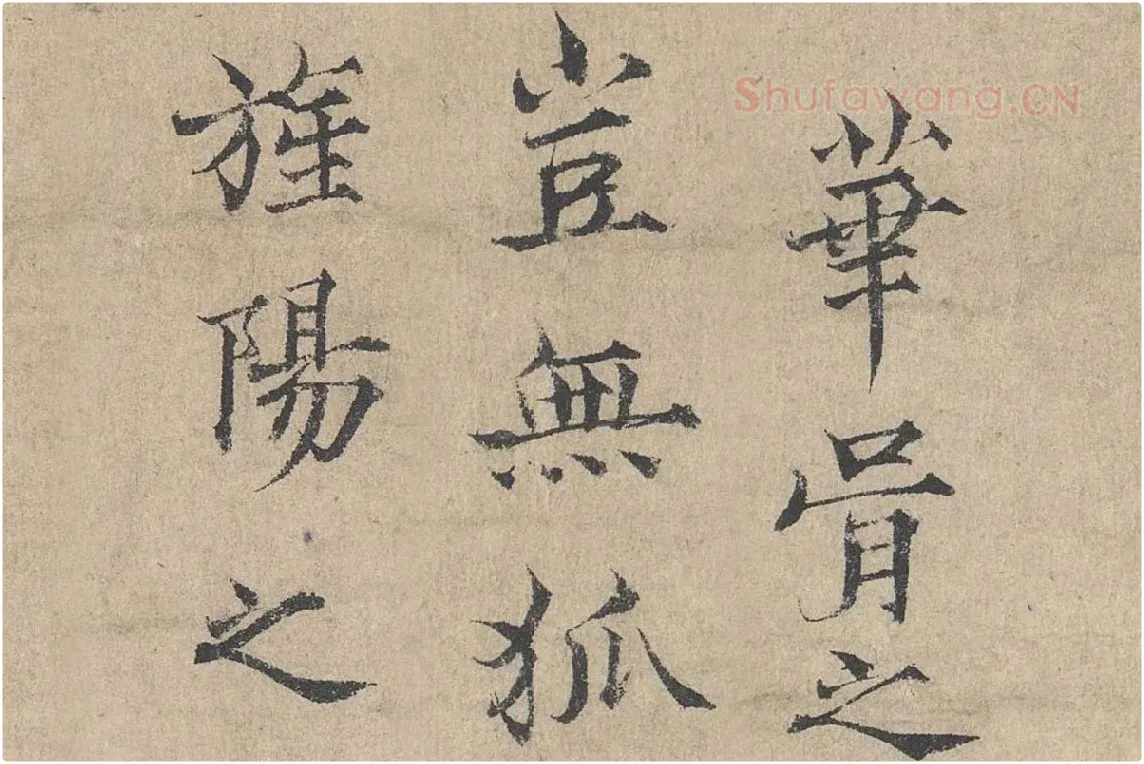 Shufawang.CN
華胥之
豈無狐
旌陽之